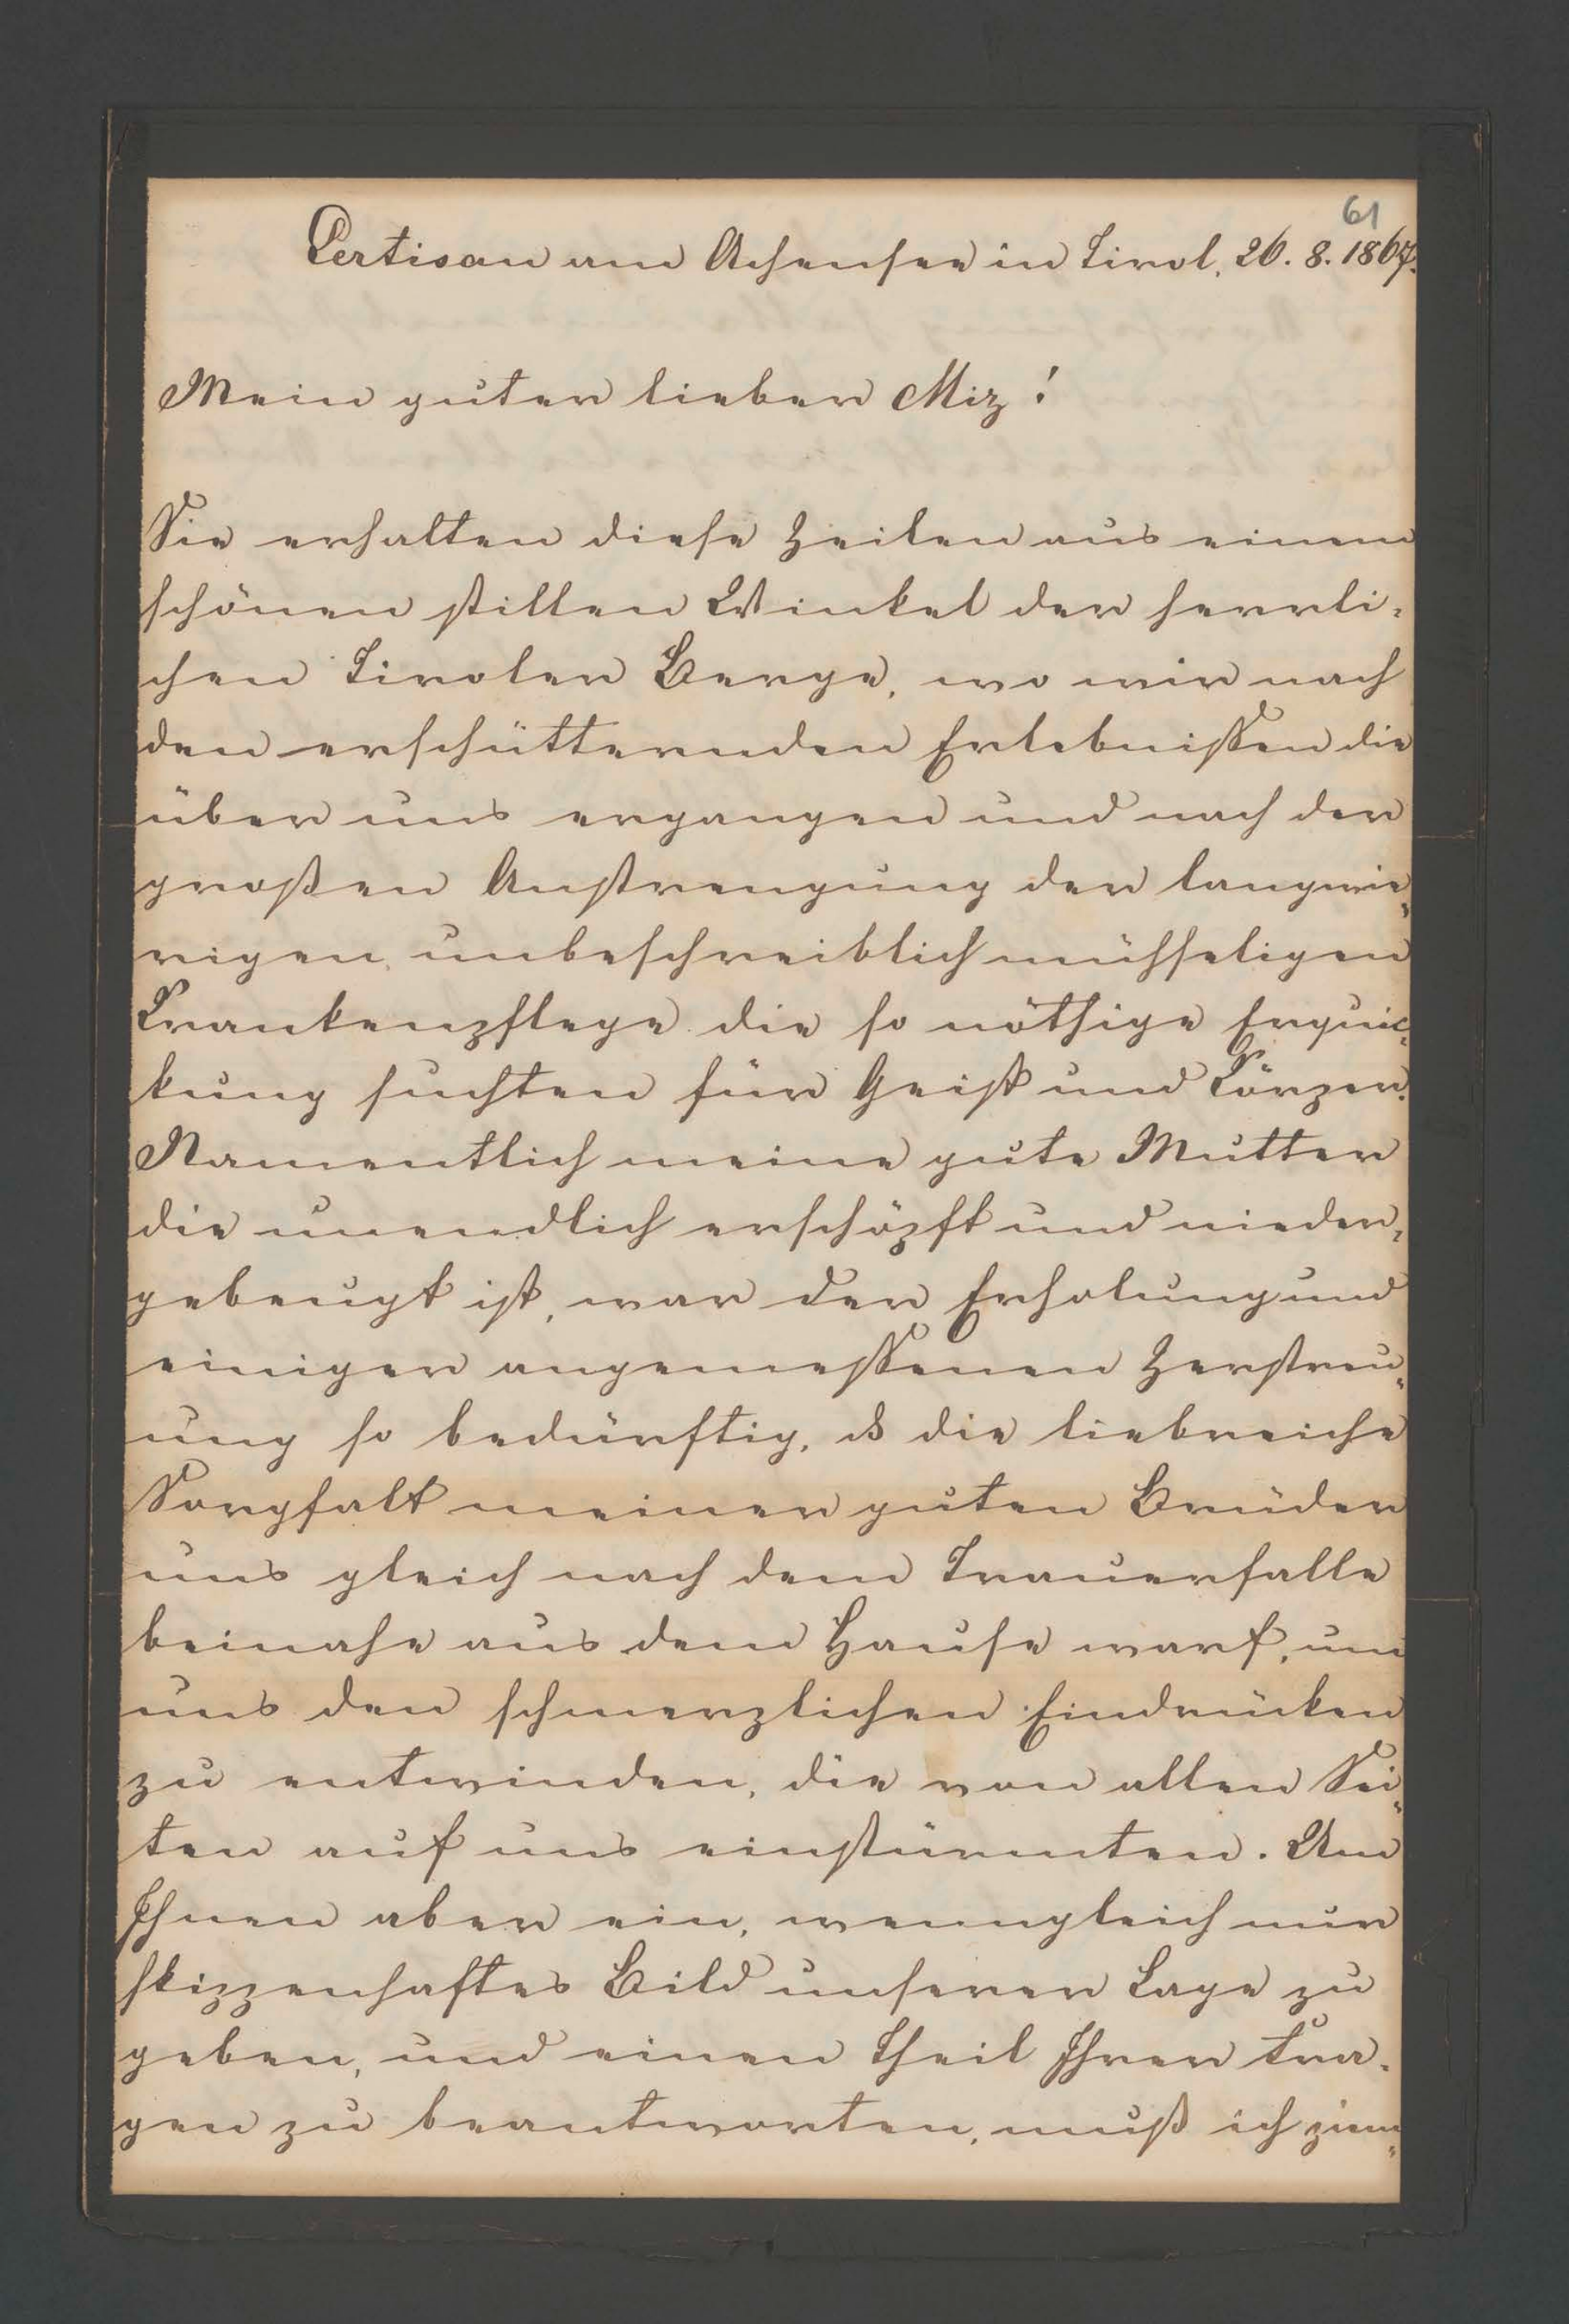 61
Pertisau am Achensee in Tirol, 26. 8. 1867.
Mein guter lieber Miz!
Sie erhalten diese Zeilen aus einem
schönen stillen Winkel der herrli-
chen Tiroler Berge, wo wir nach
den erschütternden Erlebnissen die
über uns ergangen und nach der
großen Anstrengung der langwie-
rigen, unbeschreiblich mühseligen
Krankenpflege die so nöthige Erquic-
kung suchten für Geist und Körper.
Namentlich meine gute Mutter
die unendlich erschöpft und nieder-
gebeugt ist, war der Erholung und
einiger angemessenen Zerstreu-
ung so bedürftig, dß die liebreiche
Sorgfalt meiner guten Brüder
uns gleich nach dem Trauerfalle
beinahe aus dem Hause warf, um
uns den schmerzlichen Eindrücken
zu entwinden, die von allen Sei-
ten auf uns einstürmten. Um
Ihnen aber ein, wenngleich nur
skizzenhaftes Bild unserer Lage zu
geben, und einen Theil Ihrer Fra-
gen zu beantworten, muß ich ziem-